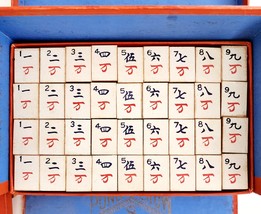 1一 2二 3三 4四 5伍 6六 7七 8八 9九
万 万 万 万 万 万 万 万 万
1一 2二 3三 4四 5伍 6六 7七 8八 9九
万 万 万 万 万 万 万 万 万
1一 2二 3三 4四 5伍 6六 7七 8八 9九
万 万 万 万 万 万 万 万 万
1一 2二 3三 4四 5伍 6六 7七 8八 9九
万 万 万 万 万 万 万 万 万